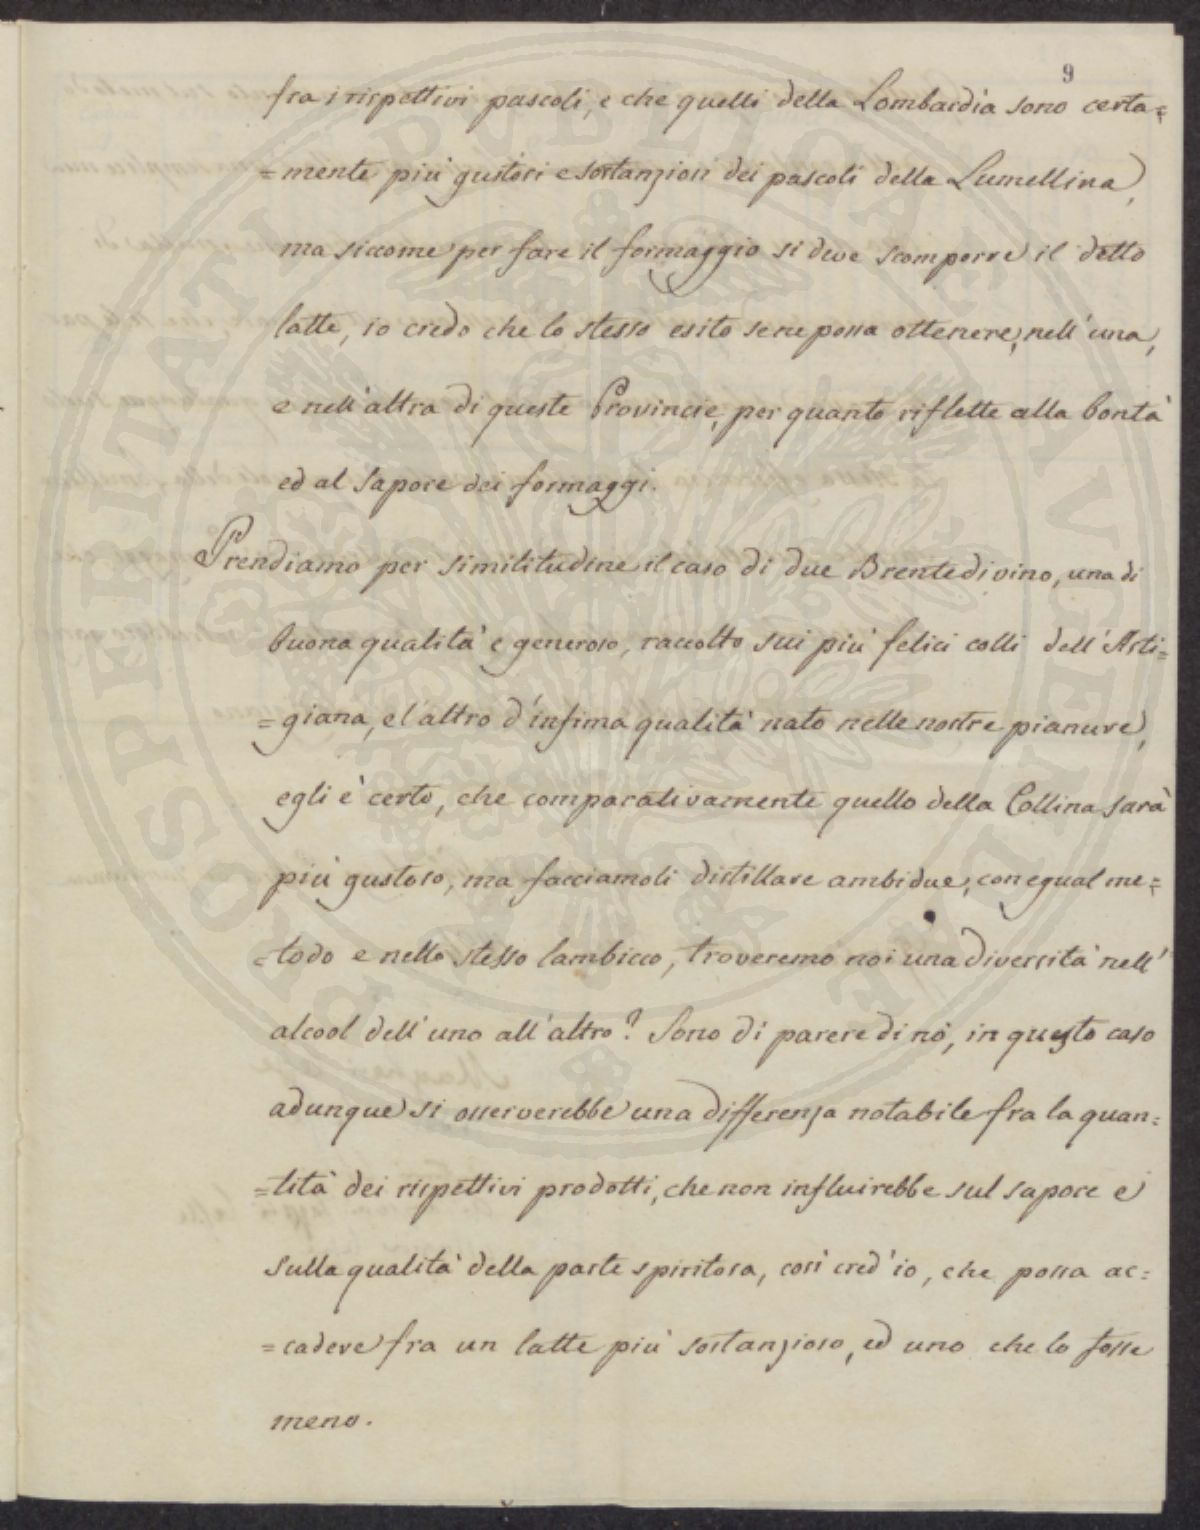 9
fra i rispettivi pascoli, e che quelli della Lombardia sono certa=
=mente più gustosi e sostanziosi dei pascoli della Lumellina,
ma siccome per fare il formaggio si deve scomporre il detto
latte, io credo che lo stesso esito se ne possa ottenere, nell'una,
e nell'altra di queste Provincie, per quanto riflette alla bontà
ed al sapore dei formaggi.
Prendiamo per similitudine il caso di due Brente di vino, una di
buona qualità e generoso, raccolto sui più felici colli dell'Asti=
=giana, e l'altro d'infima qualità nato nelle nostre pianure,
egli è certo, che comparativamente quello della Collina sarà
più gustoso, ma facciamoli distillare ambidue, con egual me=
=todo e nello stesso lambicco, troveremo noi una diversità nell'
alcool dell'uno all'altro? Sono di parere di nò, in questo caso
adunque si osserverebbe una differenza notabile fra la quan=
=tità dei rispettivi prodotti, che non influirebbe sul sapore e
sulla qualità della parte spiritosa, così cred'io, che possa ac=
=cadere fra un latte più sostanzioso, ed uno che lo fosse
meno.
PROSPERITATI PUBLICAE AUGENDAE